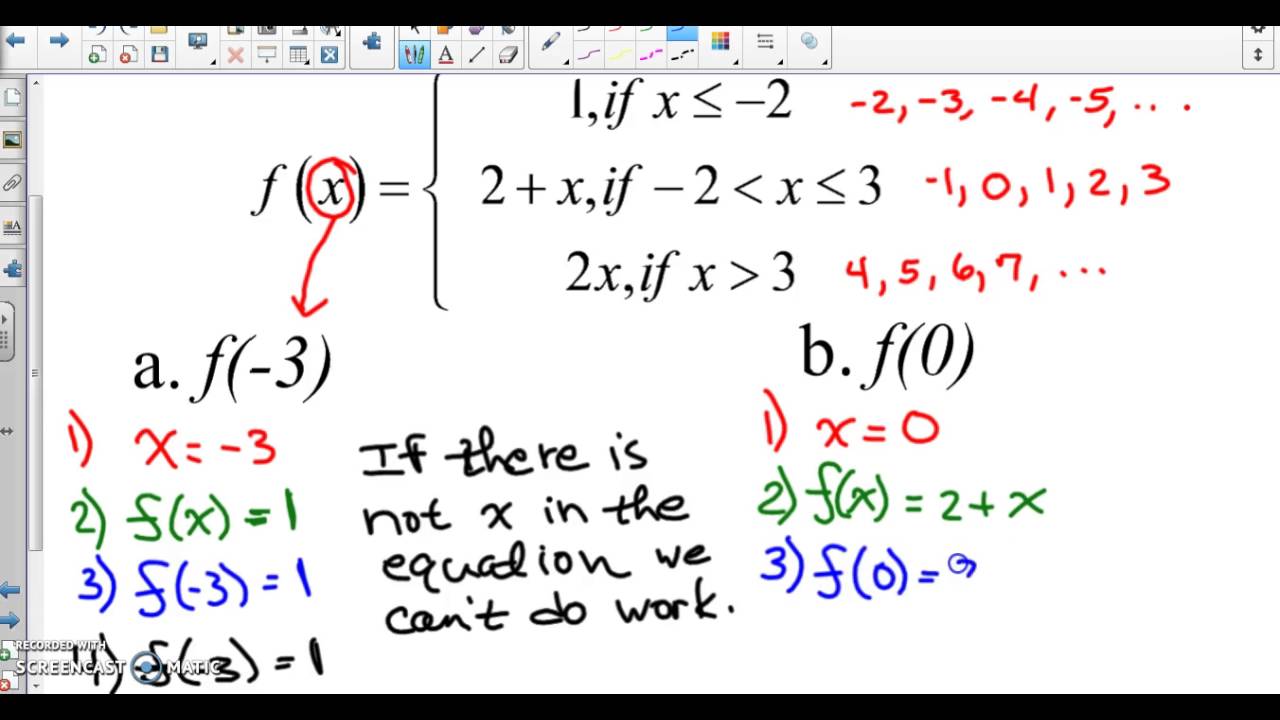 1, if x ≤ −2 -2, -3, -4, -5, ...
f(x) = 2 + x, if − 2 < x ≤ 3 -1, 0, 1, 2, 3
2x, if x > 3 4, 5, 6, 7, ...
a. f(-3)
1) x = -3
2) f(x) = 1
3) f(-3) = 1
4) f(-3) = 1
If there is
not x in the
equation we
can't do work.
b. f(0)
1) x = 0
2) f(x) = 2 + x
3) f(0) = 2
RECORDED WITH
SCREENCAST MATIC